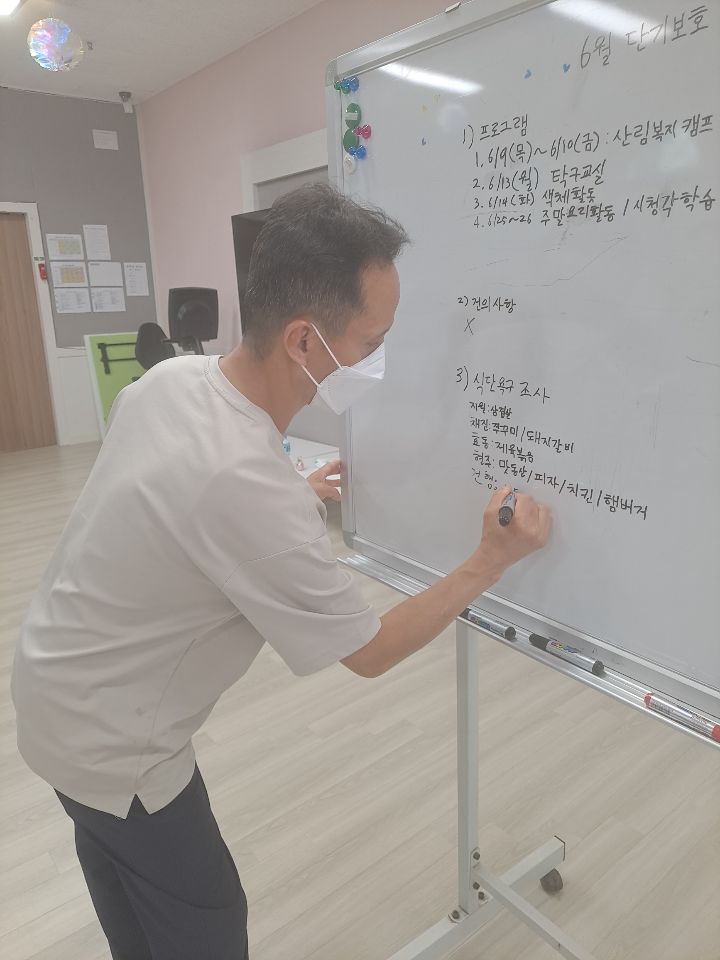 6월 단기보호
1) 프로그램
1. 6/9(목)~6/10(금) : 산림복지 캠프
2. 6/13(월) 탁구교실
3. 6/14(화) 색체활동
4. 6/25~26 주말요리활동 / 시청각학습
2) 건의사항
X
3) 식단욕구 조사
지원: 삼겹살
채진: 쭈꾸미 / 돼지갈비
효동: 제육볶음
현주: 맛동산 / 피자 / 치킨 / 햄버거